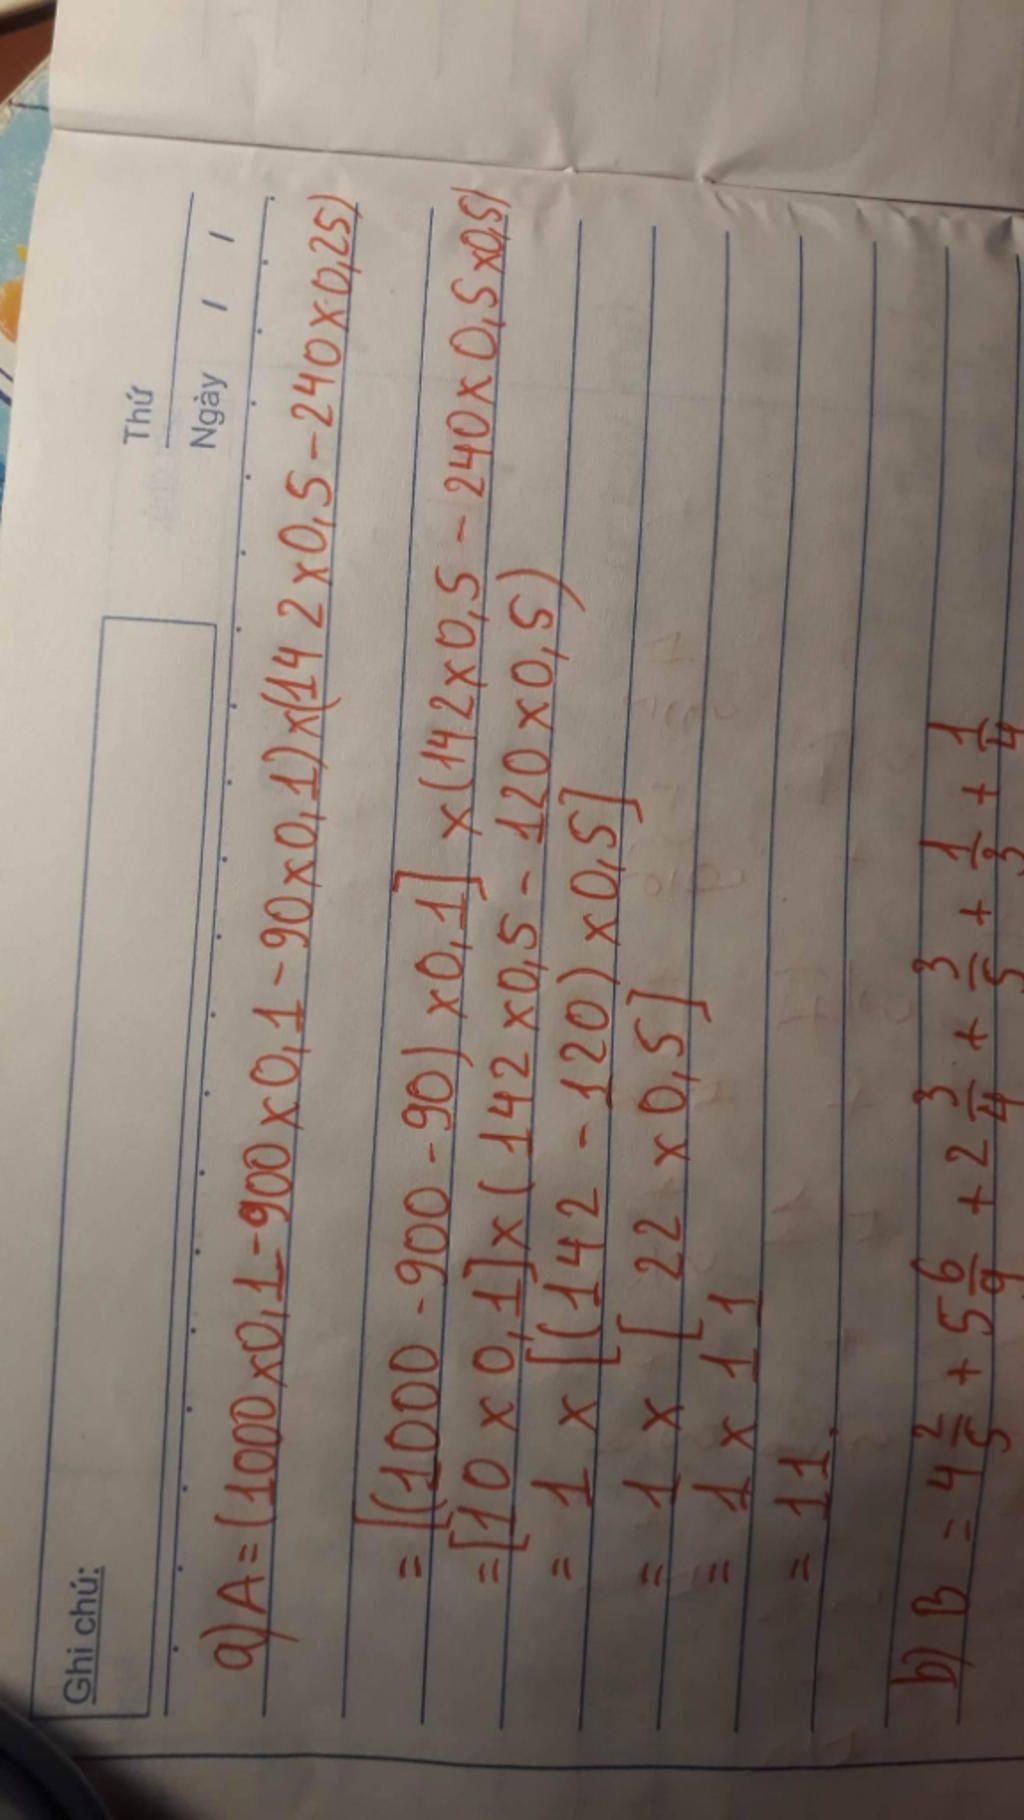 Ghi chú:
Thứ
Ngày / /
a) A = (1000 x 0,1 - 900 x 0,1 - 90 x 0,1) x (142 x 0,5 - 240 x 0,25)
= [(1000 - 900 - 90) x 0,1] x (142 x 0,5 - 240 x 0,5 x 0,5)
= [10 x 0,1] x (142 x 0,5 - 120 x 0,5)
= 1 x [(142 - 120) x 0,5]
= 1 x [22 x 0,5]
= 1 x 11
= 11.
b) B = 4 2/5 + 5 6/9 + 2 3/4 + 3/5 + 1/3 + 1/4